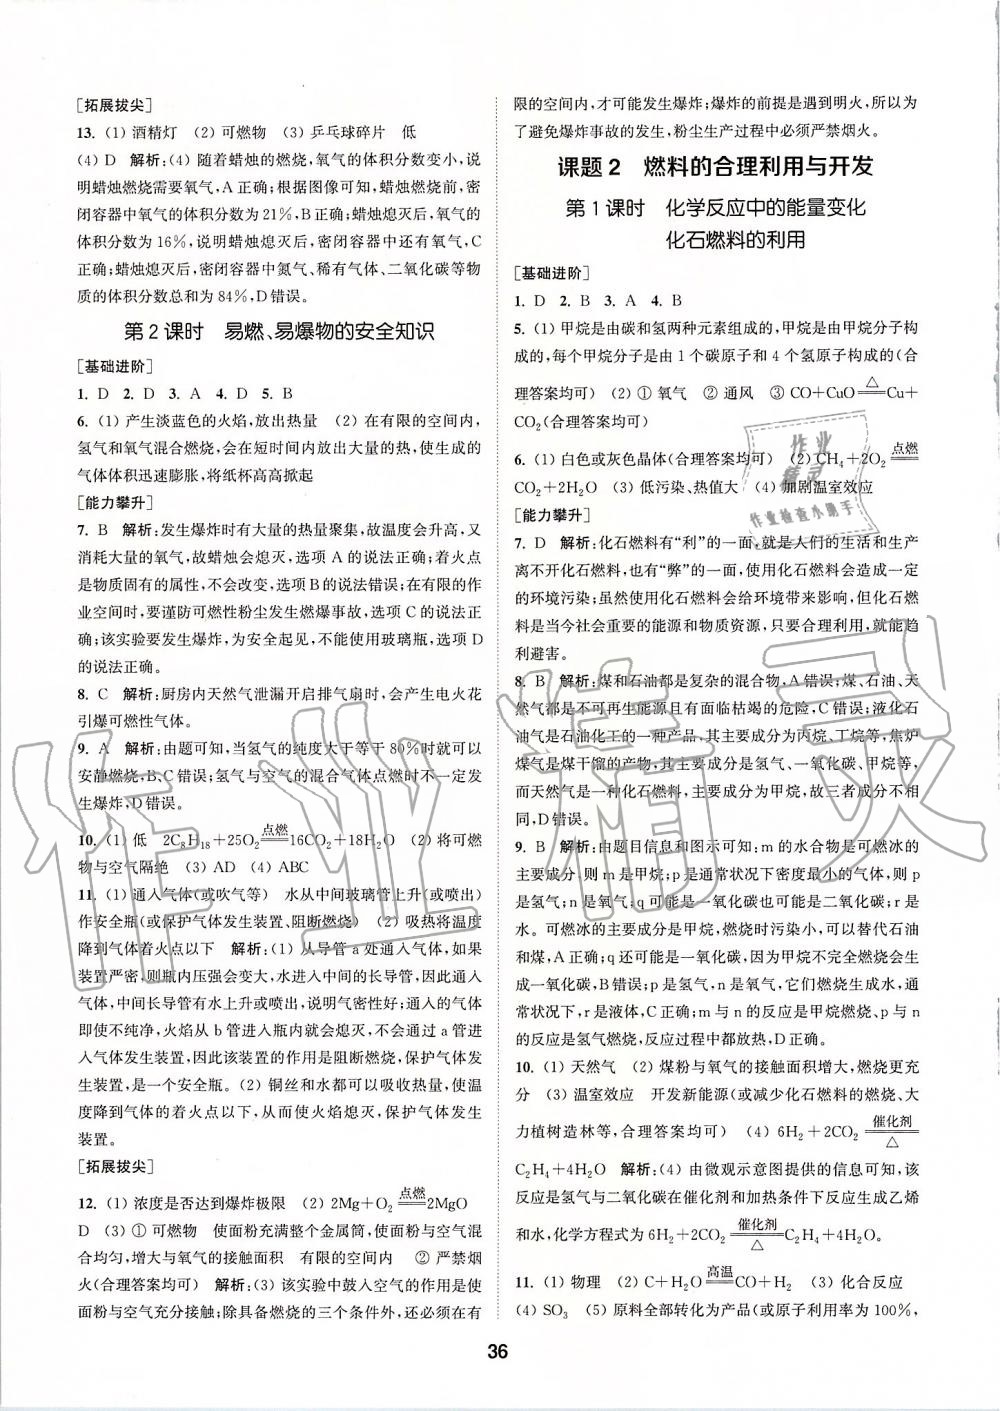 [拓展拔尖]
13. (1) 酒精灯 (2) 可燃物 (3) 乒乓球碎片 低
(4) D 解析:(4) 随着蜡烛的燃烧,氧气的体积分数变小,说
明蜡烛燃烧需要氧气,A正确;根据图像可知,蜡烛燃烧前,密
闭容器中氧气的体积分数为21%,B正确;蜡烛熄灭后,氧气的
体积分数为16%,说明蜡烛熄灭后,密闭容器中还有氧气,C
正确;蜡烛熄灭后,密闭容器中氮气、稀有气体、二氧化碳等物
质的体积分数总和为84%,D错误。
第2课时 易燃、易爆物的安全知识
[基础进阶]
1. D 2. D 3. A 4. D 5. B
6. (1) 产生淡蓝色的火焰,放出热量 (2) 在有限的空间内,
氢气和氧气混合燃烧,会在短时间内放出大量的热,使生成的
气体体积迅速膨胀,将纸杯高高掀起
[能力攀升]
7. B 解析:发生爆炸时有大量的热量聚集,故温度会升高,又
消耗大量的氧气,故蜡烛会熄灭,选项A的说法正确;着火点
是物质固有的属性,不会改变,选项B的说法错误;在有限的作
业空间时,要谨防可燃性粉尘发生燃爆事故,选项C的说法正
确;该实验要发生爆炸,为安全起见,不能使用玻璃瓶,选项D
的说法正确。
8. C 解析:厨房内天然气泄漏开启排气扇时,会产生电火花
引爆可燃性气体。
9. A 解析:由题可知,当氢气的纯度大于等于80%时就可以
安静燃烧,B、C错误;氢气与空气的混合气体点燃时不一定发
生爆炸,D错误。
10. (1) 低 2C8H18+25O2 点燃 16CO2+18H2O (2) 将可燃
物与空气隔绝 (3) AD (4) ABC
11. (1) 通入气体(或吹气等) 水从中间玻璃管上升(或喷出)
作安全瓶(或保护气体发生装置、阻断燃烧) (2) 吸热将温度
降到气体着火点以下 解析:(1) 从导管a处通入气体,如果
装置严密,则瓶内压强会变大,水进入中间的长导管,因此通入
气体,中间长导管有水上升或喷出,说明气密性好;通入的气体
即使不纯净,火焰从b管进入瓶内就会熄灭,不会通过a管进
入气体发生装置,因此该装置的作用是阻断燃烧,保护气体发
生装置,是一个安全瓶。(2) 铜丝和水都可以吸收热量,使温
度降到气体的着火点以下,从而使火焰熄灭,保护气体发生
装置。
[拓展拔尖]
12. (1) 浓度是否达到爆炸极限 (2) 2Mg+O2 点燃 2MgO
D (3) ① 可燃物 使面粉充满整个金属筒,使面粉与空气混
合均匀,增大与氧气的接触面积 有限的空间内 ② 严禁烟
火(合理答案均可) 解析:(3) 该实验中鼓入空气的作用是使
面粉与空气充分接触;除具备燃烧的三个条件外,还必须在有
限的空间内,才可能发生爆炸;爆炸的前提是遇到明火,所以为
了避免爆炸事故的发生,粉尘生产过程中必须严禁烟火。
课题2 燃料的合理利用与开发
第1课时 化学反应中的能量变化
化石燃料的利用
[基础进阶]
1. D 2. B 3. A 4. B
5. (1) 甲烷是由碳和氢两种元素组成的,甲烷是由甲烷分子构
成的,每个甲烷分子是由1个碳原子和4个氢原子构成的(合
理答案均可) (2) ① 氧气 ② 通风 ③ CO+CuO △ Cu+
CO2(合理答案均可)
6. (1) 白色或灰色晶体(合理答案均可) (2) CH4+2O2 点燃
CO2+2H2O (3) 低污染、热值大 (4) 加剧温室效应
[能力攀升]
7. D 解析:化石燃料有“利”的一面,就是人们的生活和生产
离不开化石燃料,也有“弊”的一面,使用化石燃料会造成一定
的环境污染;虽然使用化石燃料会给环境带来影响,但化石燃
料是当今社会重要的能源和物质资源,只要合理利用,就能趋
利避害。
8. B 解析:煤和石油都是复杂的混合物,A错误;煤、石油、天
然气都是不可再生能源且有面临枯竭的危险,C错误;液化石
油气是石油化工的一种产品,其主要成分为丙烷、丁烷等,焦炉
煤气是煤干馏的产物,其主要成分是氢气、一氧化碳、甲烷等,
而天然气是一种化石燃料,主要成分是甲烷,故三者成分不相
同,D错误。
9. B 解析:由题目信息和图示可知;m的水合物是可燃冰的
主要成分,则m是甲烷;p是通常状况下密度最小的气体,则p
是氢气;n是氧气;q可能是一氧化碳也可能是二氧化碳;r是
水。可燃冰的主要成分是甲烷,燃烧时污染小,可以替代石油
和煤,A正确;q还可能是一氧化碳,因为甲烷不完全燃烧会生
成一氧化碳,B错误;p是氢气,n是氧气,它们燃烧生成水,通
常状况下,r是液体,C正确;m与n的反应是甲烷燃烧、p与n
的反应是氢气燃烧,反应过程中都放热,D正确。
10. (1) 天然气 (2) 煤粉与氧气的接触面积增大,燃烧更充
分 (3) 温室效应 开发新能源(或减少化石燃料的燃烧、大
力植树造林等,合理答案均可) (4) 6H2+2CO2 催化剂 △
C2H4+4H2O 解析:(4) 由微观示意图提供的信息可知,该
反应是氢气与二氧化碳在催化剂和加热条件下反应生成乙烯
和水,化学方程式为6H2+2CO2 催化剂 △ C2H4+4H2O。
11. (1) 物理 (2) C+H2O 高温 CO+H2 (3) 化合反应
(4) SO3 (5) 原料全部转化为产品(或原子利用率为100%,
36
作业精灵
作业
精灵
作业检查小助手